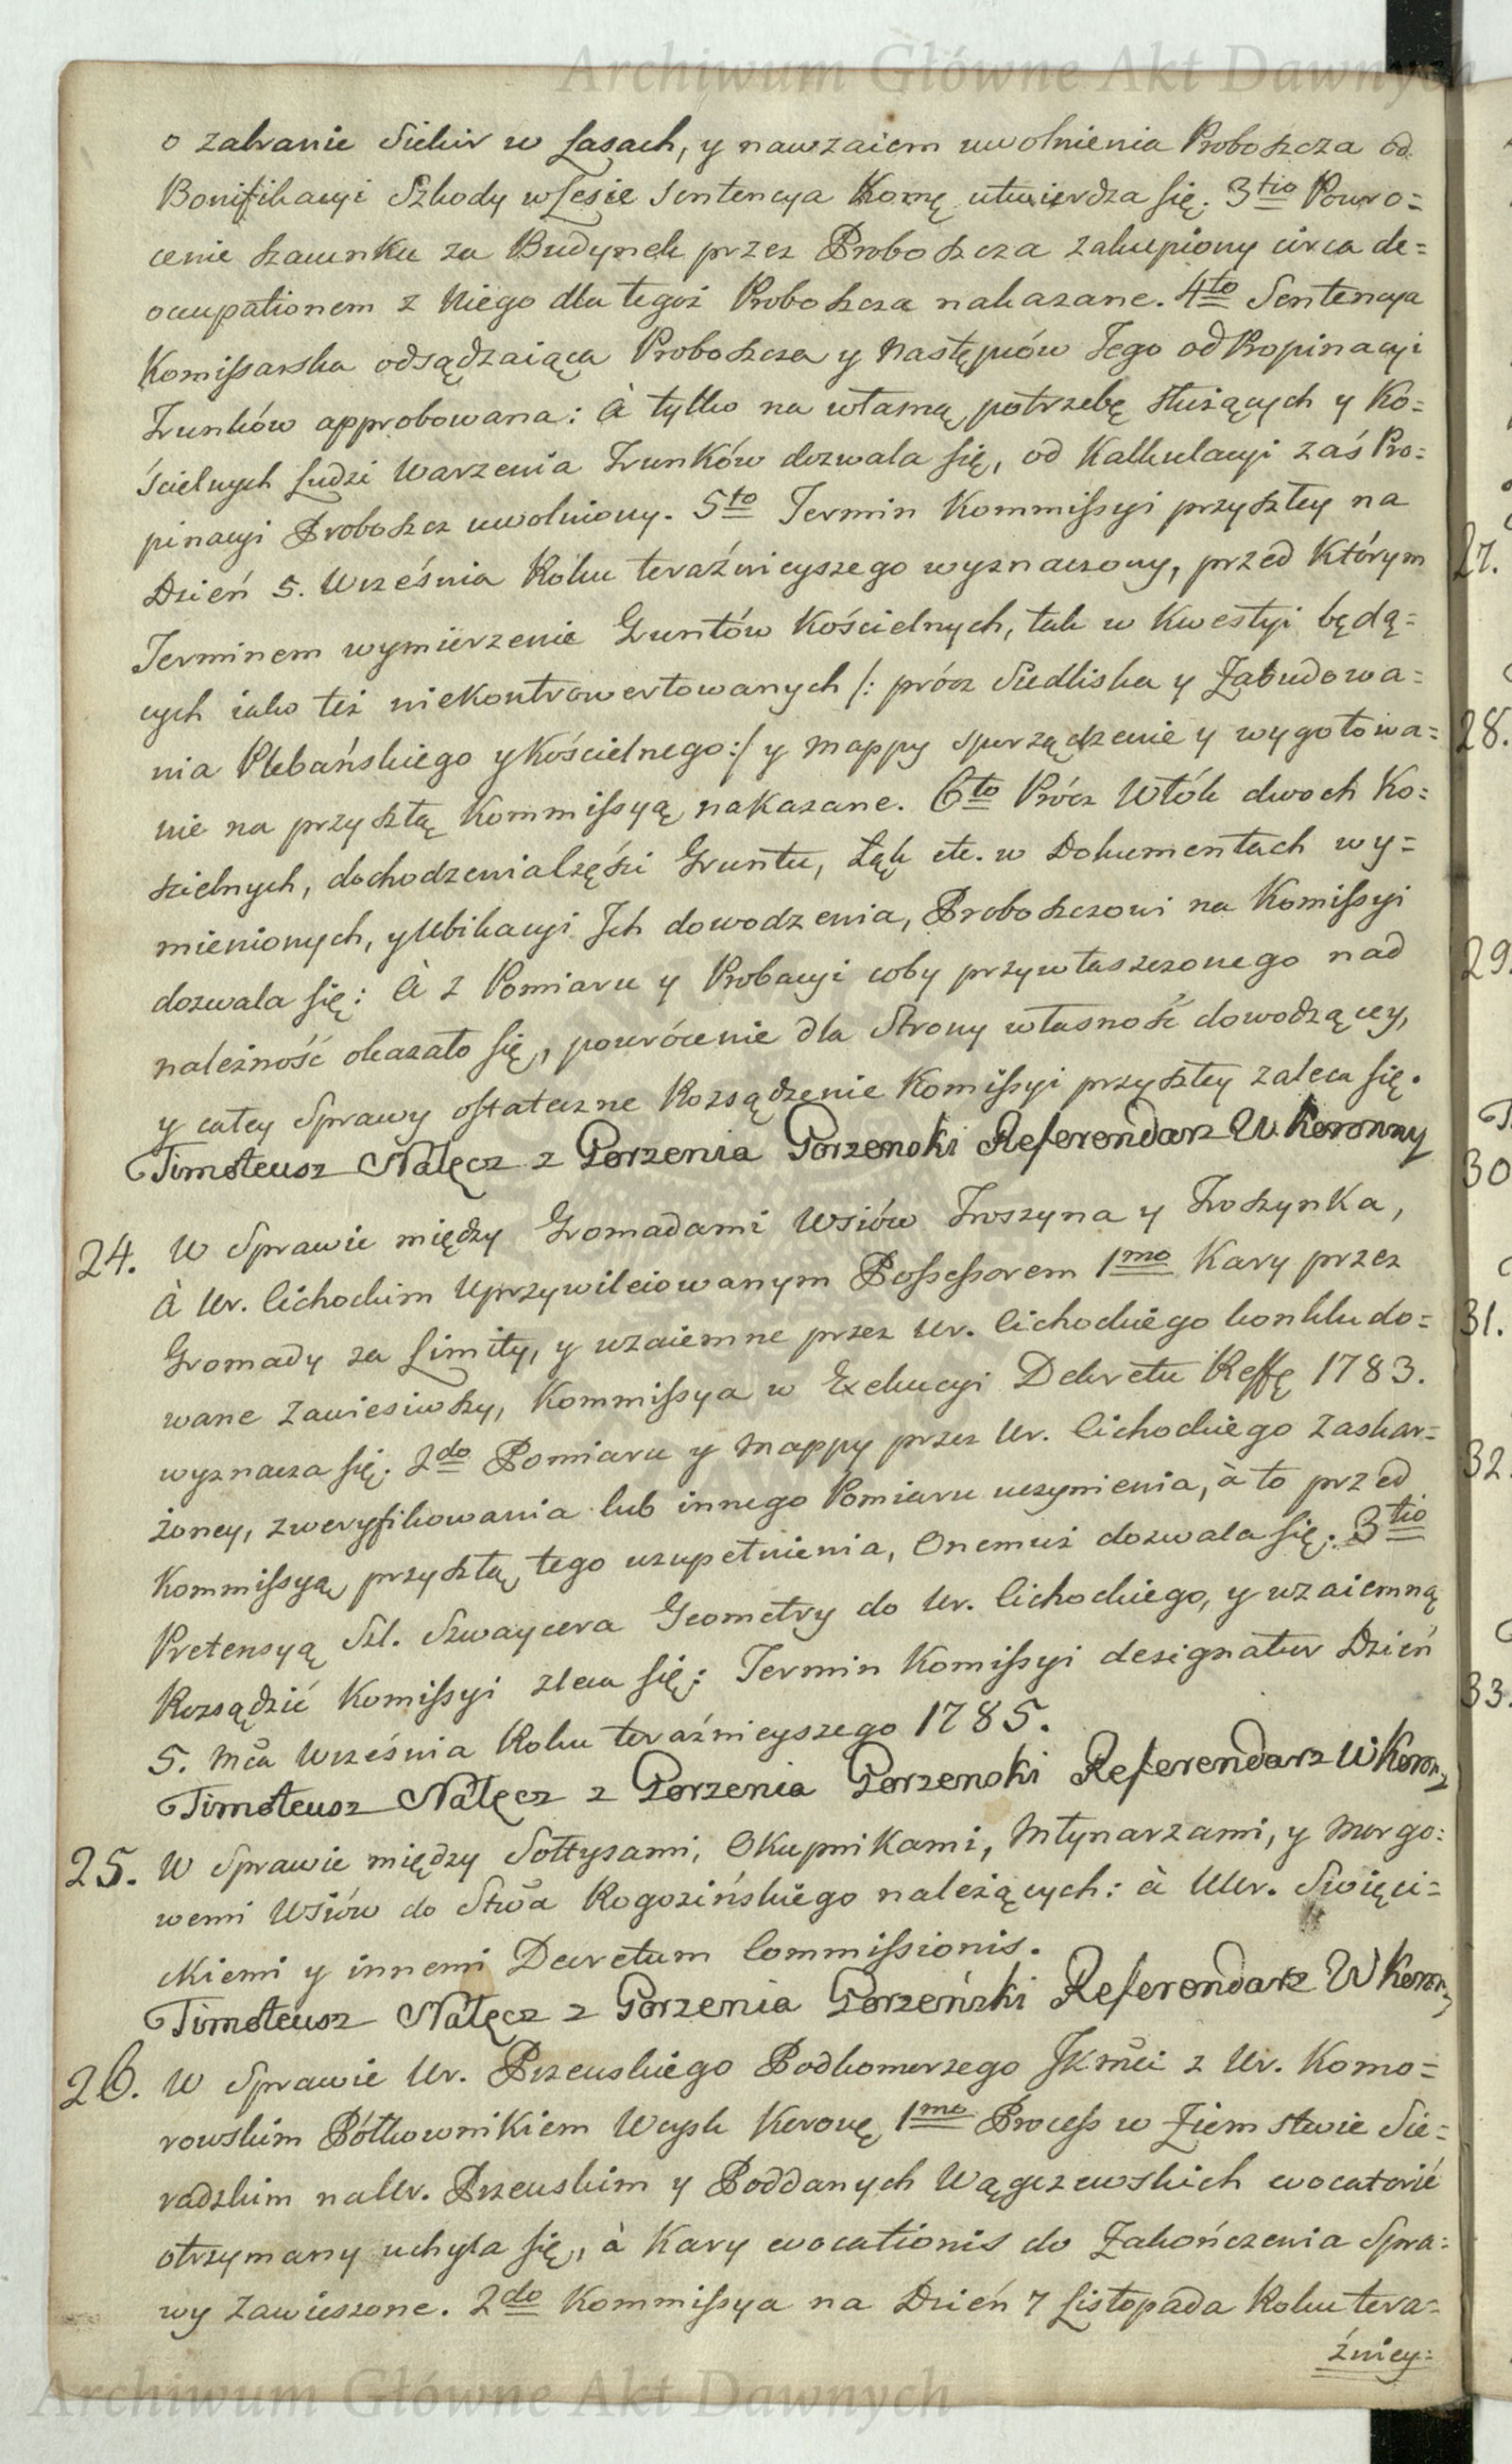 Archiwum Główne Akt Dawnych
o zabranie Siekir w Lasach, y nawzaiem uwolnienia Proboszcza od
Bonifikacyi Szkody w Lesie Sentencya Komę utwierdza się. 3tio Powro=
cenie szacunku za Budynek przez Proboszcza zakupiony circa de=
occupationem z Niego dla tegoż Proboszcza nakazane. 4to Sentencya
Komissarska odsądzaiąca Proboszcza y Następców Jego od Propinacyi
Trunków approbowana: à tylko na własną potrzebę służących y Ko=
ścielnych Ludzi Warzenia Trunków dozwala się, od Kalkulacyi zaś Pro=
pinacyi Proboszcz uwolniony. 5to Termin Kommissyi przyszłey na
Dzień 5. Września Roku teraźnieyszego wyznaczony, przed którym
Terminem wymierzenie Gruntów Kościelnych, tak w Kwestyi będą=
cych iako też niekontrowertowanych /: prócz Siedliska y Zabudowa=
nia Plebańskiego y Kościelnego:/ y mappy sporządzenie y wygotowa=
nie na przyszłą Kommissyą nakazane. 6to Prócz Włók dwoch Ko=
ścielnych, dochodzenia części Gruntu, Łąk etc. w Dokumentach wy=
mienionych, y Ubikacyi Ich dowodzenia, Proboszczowi na Komissyi
dozwala się: à z Pomiaru y Probacyi coby przywłaszczonego nad
należność okazało się, powrócenie dla Strony własność dowodzącey,
y całey Sprawy ostateczne Rozsądzenie Komissyi przyszłey zaleca się.
Timoteusz Nałęcz z Gorzenia Gorzenski Referendarz W Koronny
24. W Sprawie między Gromadami Wsiów Troszyna y Troszynka,
à Ur. Cichockim Uprzywileiowanym Possessorem 1mo Kary przez
Gromady za Limity, y wzaiemne przez Ur. Cichockiego konkludo=
wane zawiesiwszy, Kommissya w Exekucyi Dekretu Reffę 1783.
wyznacza się. 2do Pomiaru y mappy przez Ur. Cichockiego zaskar=
żoney, zweryfikowania lub innego Pomiaru uczynienia, à to przed
Kommissyą przyszłą tego uzupełnienia, Onemuż dozwala się. 3tio
Pretensyą Szl. Szwaycera Geometry do Ur. Cichockiego, y wzaiemną
Rozsądzić Komissyi zleca się: Termin Komissyi designatur Dzień
5. mca Września Roku teraźnieyszego 1785.
Timoteusz Nałęcz z Gorzenia Gorzenski Referendarz W Koron
25. W Sprawie między Sołtysami, Okupnikami, Młynarzami, y Murgo=
wemi Wsiów do Stwa Rogozińskiego należących: à UUr. Swięci=
ckiemi y innemi Decretum Commissionis.
Timoteusz Nałęcz z Gorzenia Gorzeński Referendarz W Koron
26. W Sprawie Ur. Przeuskiego Podkomorzego JKmci z Ur. Komo=
rowskim Półkownikiem Woysk Koronę 1mo Process w Ziemstwie Sie=
radzkim na Ur. Przeuskim y Poddanych Wągczewskich evocatorié
otrzymany uchyla się, à Kary evocationis do Zakończenia Spra=
wy Zawieszone. 2do Kommissya na Dzień 7 Listopada Roku tera=
źniey=
27.
28.
29.
30
31.
32.
33.
Archiwum Główne Akt Dawnych